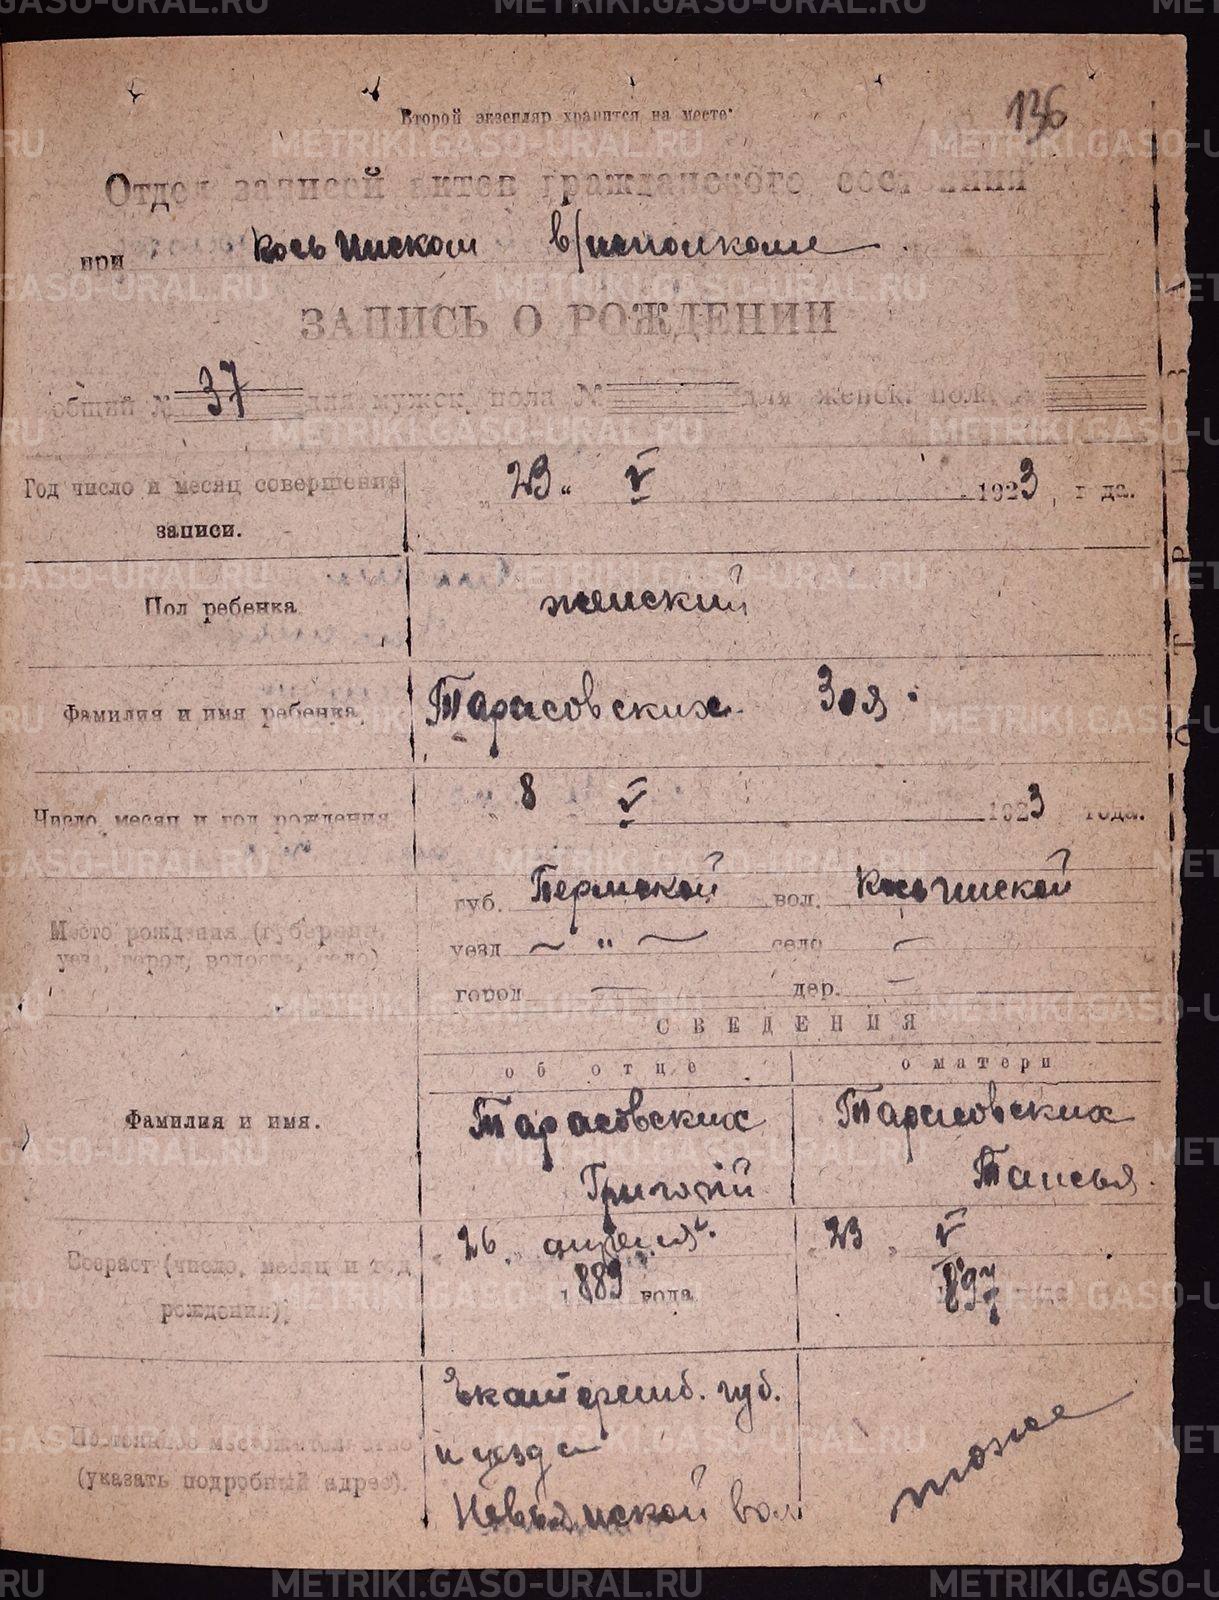 136
Второй экземпляр хранится на месте.
Отдел записей актов гражданского состояния
при Косьинском в/исполкоме
ЗАПИСЬ О РОЖДЕНИИ
общий № 37 для мужск. пола № для женск. пол. №
Год число и месяц совершения записи. "23" V 1923 года.
Пол ребенка женский
Фамилия и имя ребенка. Тарасовских Зоя.
Число, месяц и год рождения 8 V 1923 года.
Место рождения (губерния, уезд, город, волость, село)
губ. Пермской вол.
уезд ~ " ~ село —
город — дер. —
СВЕДЕНИЯ
об отце о матери
Фамилия и имя. Тарасовских Григорій Тарасовских Таисья.
Возраст (число, месяц и год рождения). "26" апреля 1889 года "23" V 1897
Постоянное местожительство (указать подробный адрес).
Екатеринб. губ.
и уезда
Невьянской вол
тоже
ОТРЕЗ
METRIKI.GASO-URAL.RU